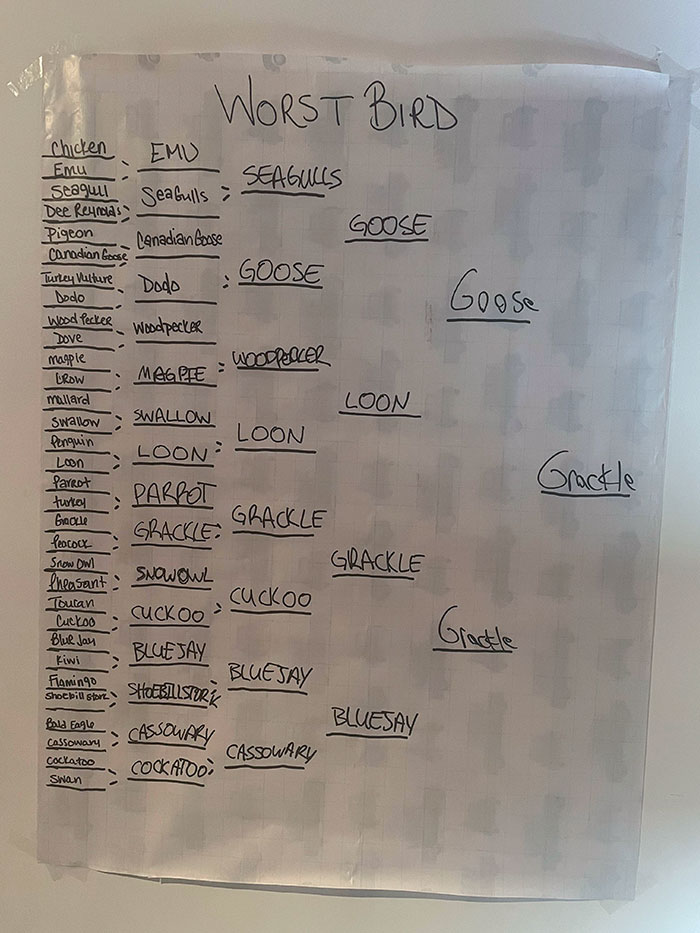 WORST BIRD
Chicken
Emu
Seagull
Dee Reynolds
Pigeon
Canadian Goose
Turkey Vulture
Dodo
Wood Pecker
Dove
magpie
Crow
mallard
Swallow
Penguin
Loon
Parrot
turkey
Grackle
Peacock
Snow Owl
Pheasant
Toucan
Cuckoo
Blue Jay
Kiwi
Flamingo
Shoebill stork
Bald Eagle
Cassowary
Cockatoo
Swan
EMU
SeaGulls
Canadian Goose
Dodo
Woodpecker
MAGPIE
SWALLOW
LOON
PARROT
GRACKLE
SNOWOWL
CUCKOO
BLUEJAY
SHOEBILLSTORK
CASSOWARY
COCKATOO
SEAGULLS
GOOSE
WOODPECKER
LOON
GRACKLE
CUCKOO
BLUEJAY
CASSOWARY
GOOSE
LOON
GRACKLE
BLUEJAY
Goose
Grackle
Grackle